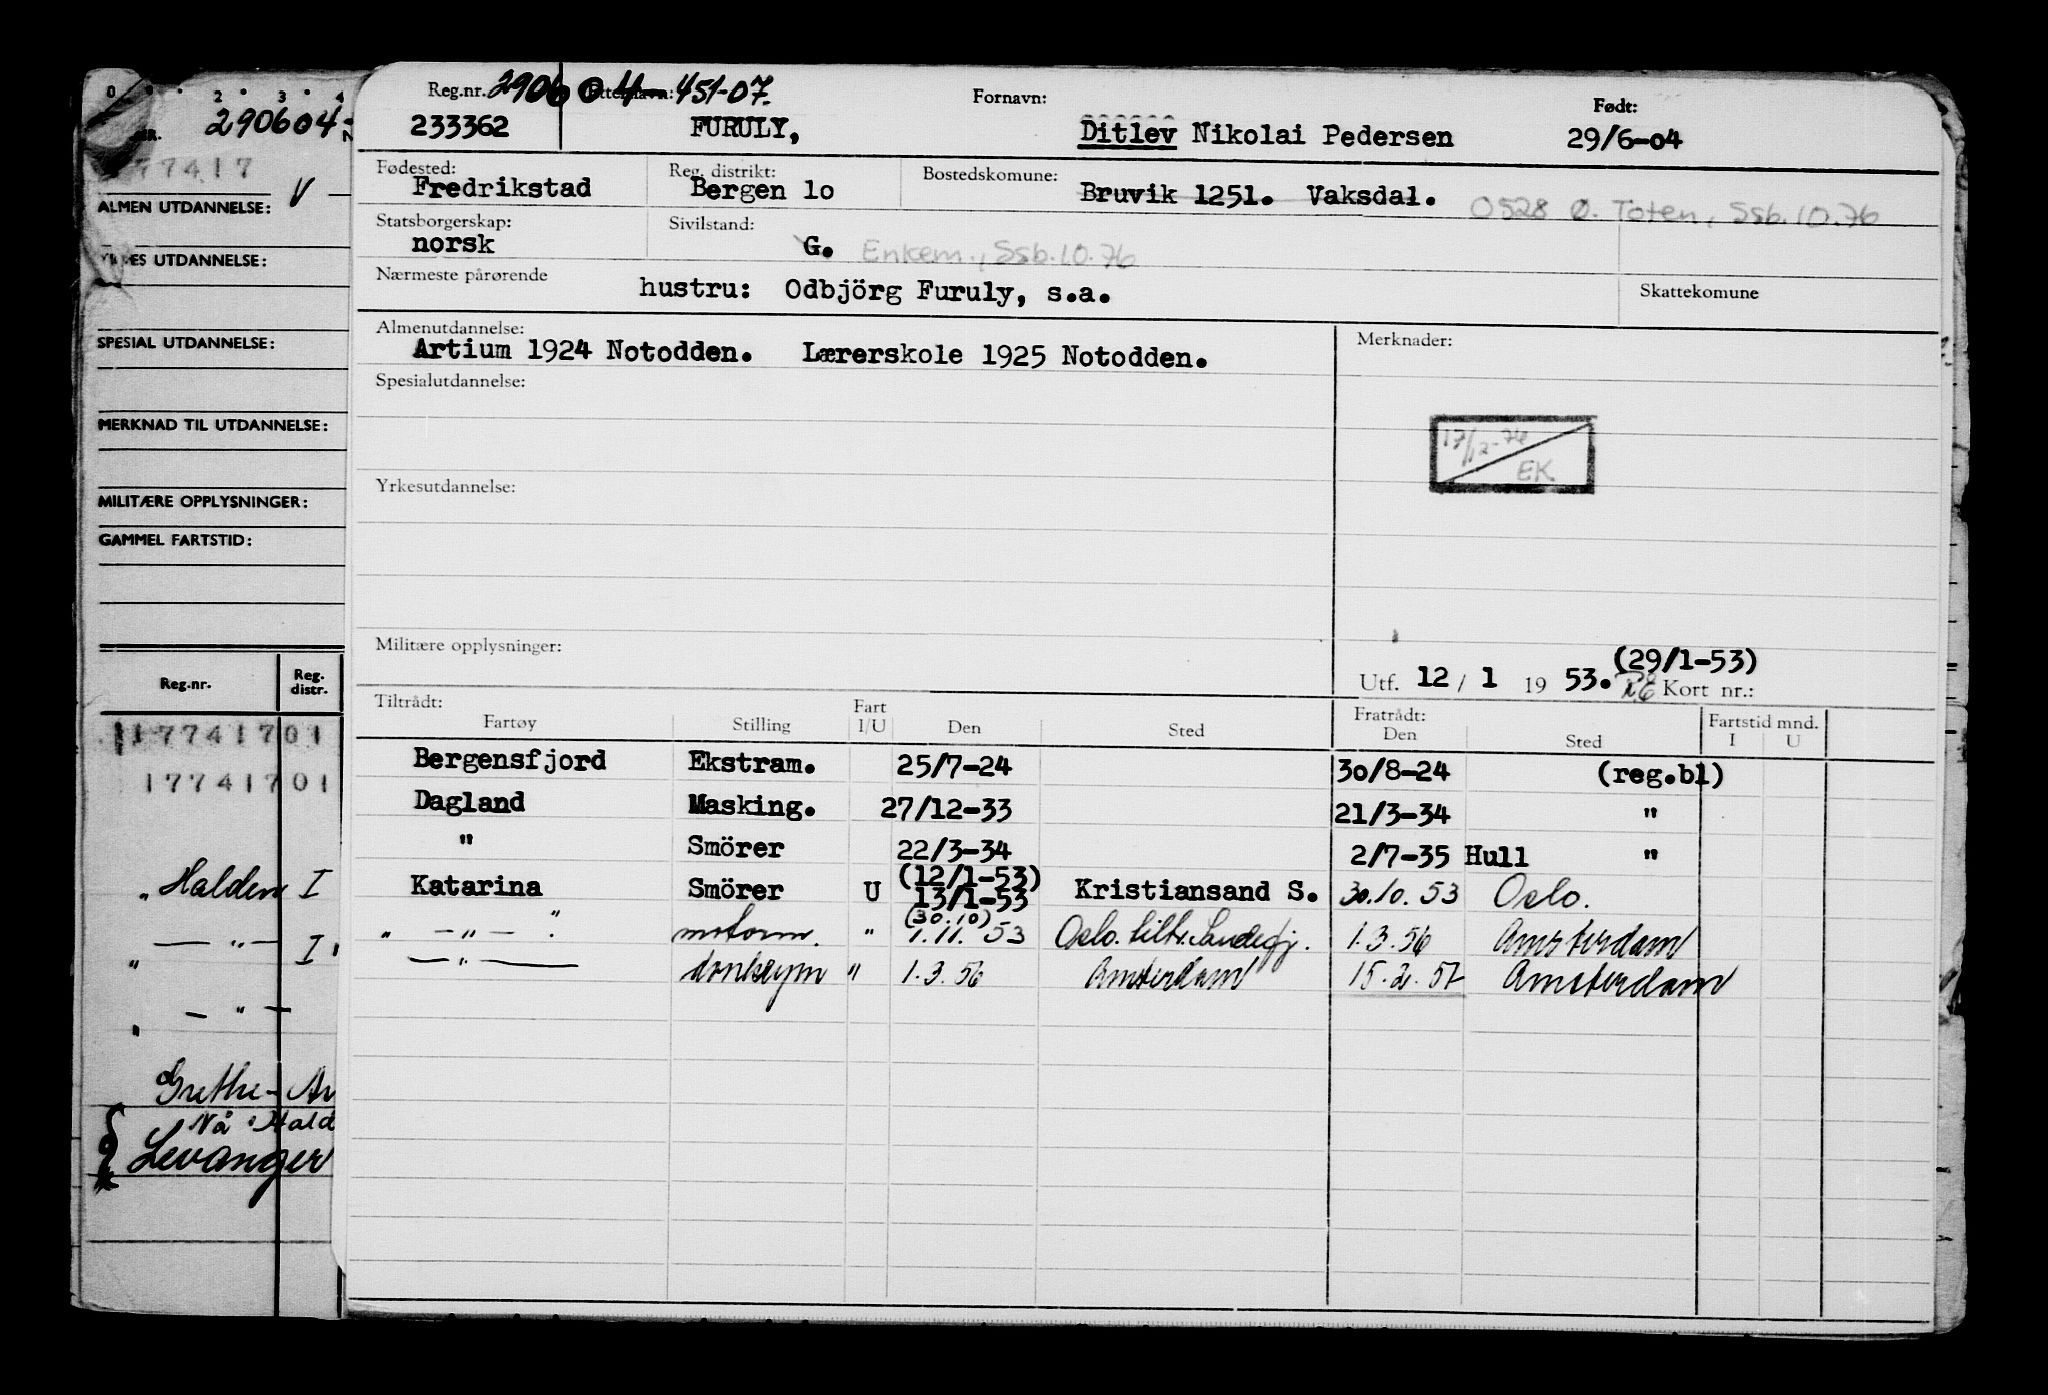 0 2 3 4
NR. 290604-
77417
V —
ALMEN UTDANNELSE:
UTDANNELSE:
SPESIAL UTDANNELSE:
MERKNAD TIL UTDANNELSE:
MILITÆRE OPPLYSNINGER:
GAMMEL FARTSTID:
Reg.nr. Reg. distr.
17741701
17741701
" Halden I
" — " — I "
" — " —
Grethe - An
Nå Hald
Levanger
Reg.nr. 290604-451-07. Fornavn: Født:
233362 FURULY, Ditlev Nikolai Pedersen 29/6-04
Fødested: Reg. distrikt: Bostedskomune:
Fredrikstad Bergen 1o Bruvik 1251. Vaksdal. 0528 Ø. Toten, Ssb.10.76
Statsborgerskap: Sivilstand:
norsk G. Enkem., Ssb.10.76
Nærmeste pårørende hustru: Odbjörg Furuly, s.a. Skattekomune
Almenutdannelse: Merknader:
Artium 1924 Notodden. Lærerskole 1925 Notodden.
Spesialutdannelse:
17/12-74
EK
Yrkesutdannelse:
Militære opplysninger:
(29/1-53)
Utf. 12 / 1 19 53. Kort nr.:
Tiltrådt: Fart Fratrådt: Fartstid mnd.
Fartøy Stilling I/U Den Sted Den Sted I U
Bergensfjord Ekstram. 25/7-24 30/8-24 (reg.bl)
Dagland Masking. 27/12-33 21/3-34 "
" Smörer 22/3-34 2/7-35 Hull "
(12/1-53)
Katarina Smörer U 13/1-53 Kristiansand S. 30.10.53 Oslo.
(30.10)
" — " — " motorm. " 1.11.53 Oslo. tiltr. Sandefj. 1.3.56 Amsterdam
— " — donkeym " 1.3.56 Amsterdam 15.2.57 Amsterdam